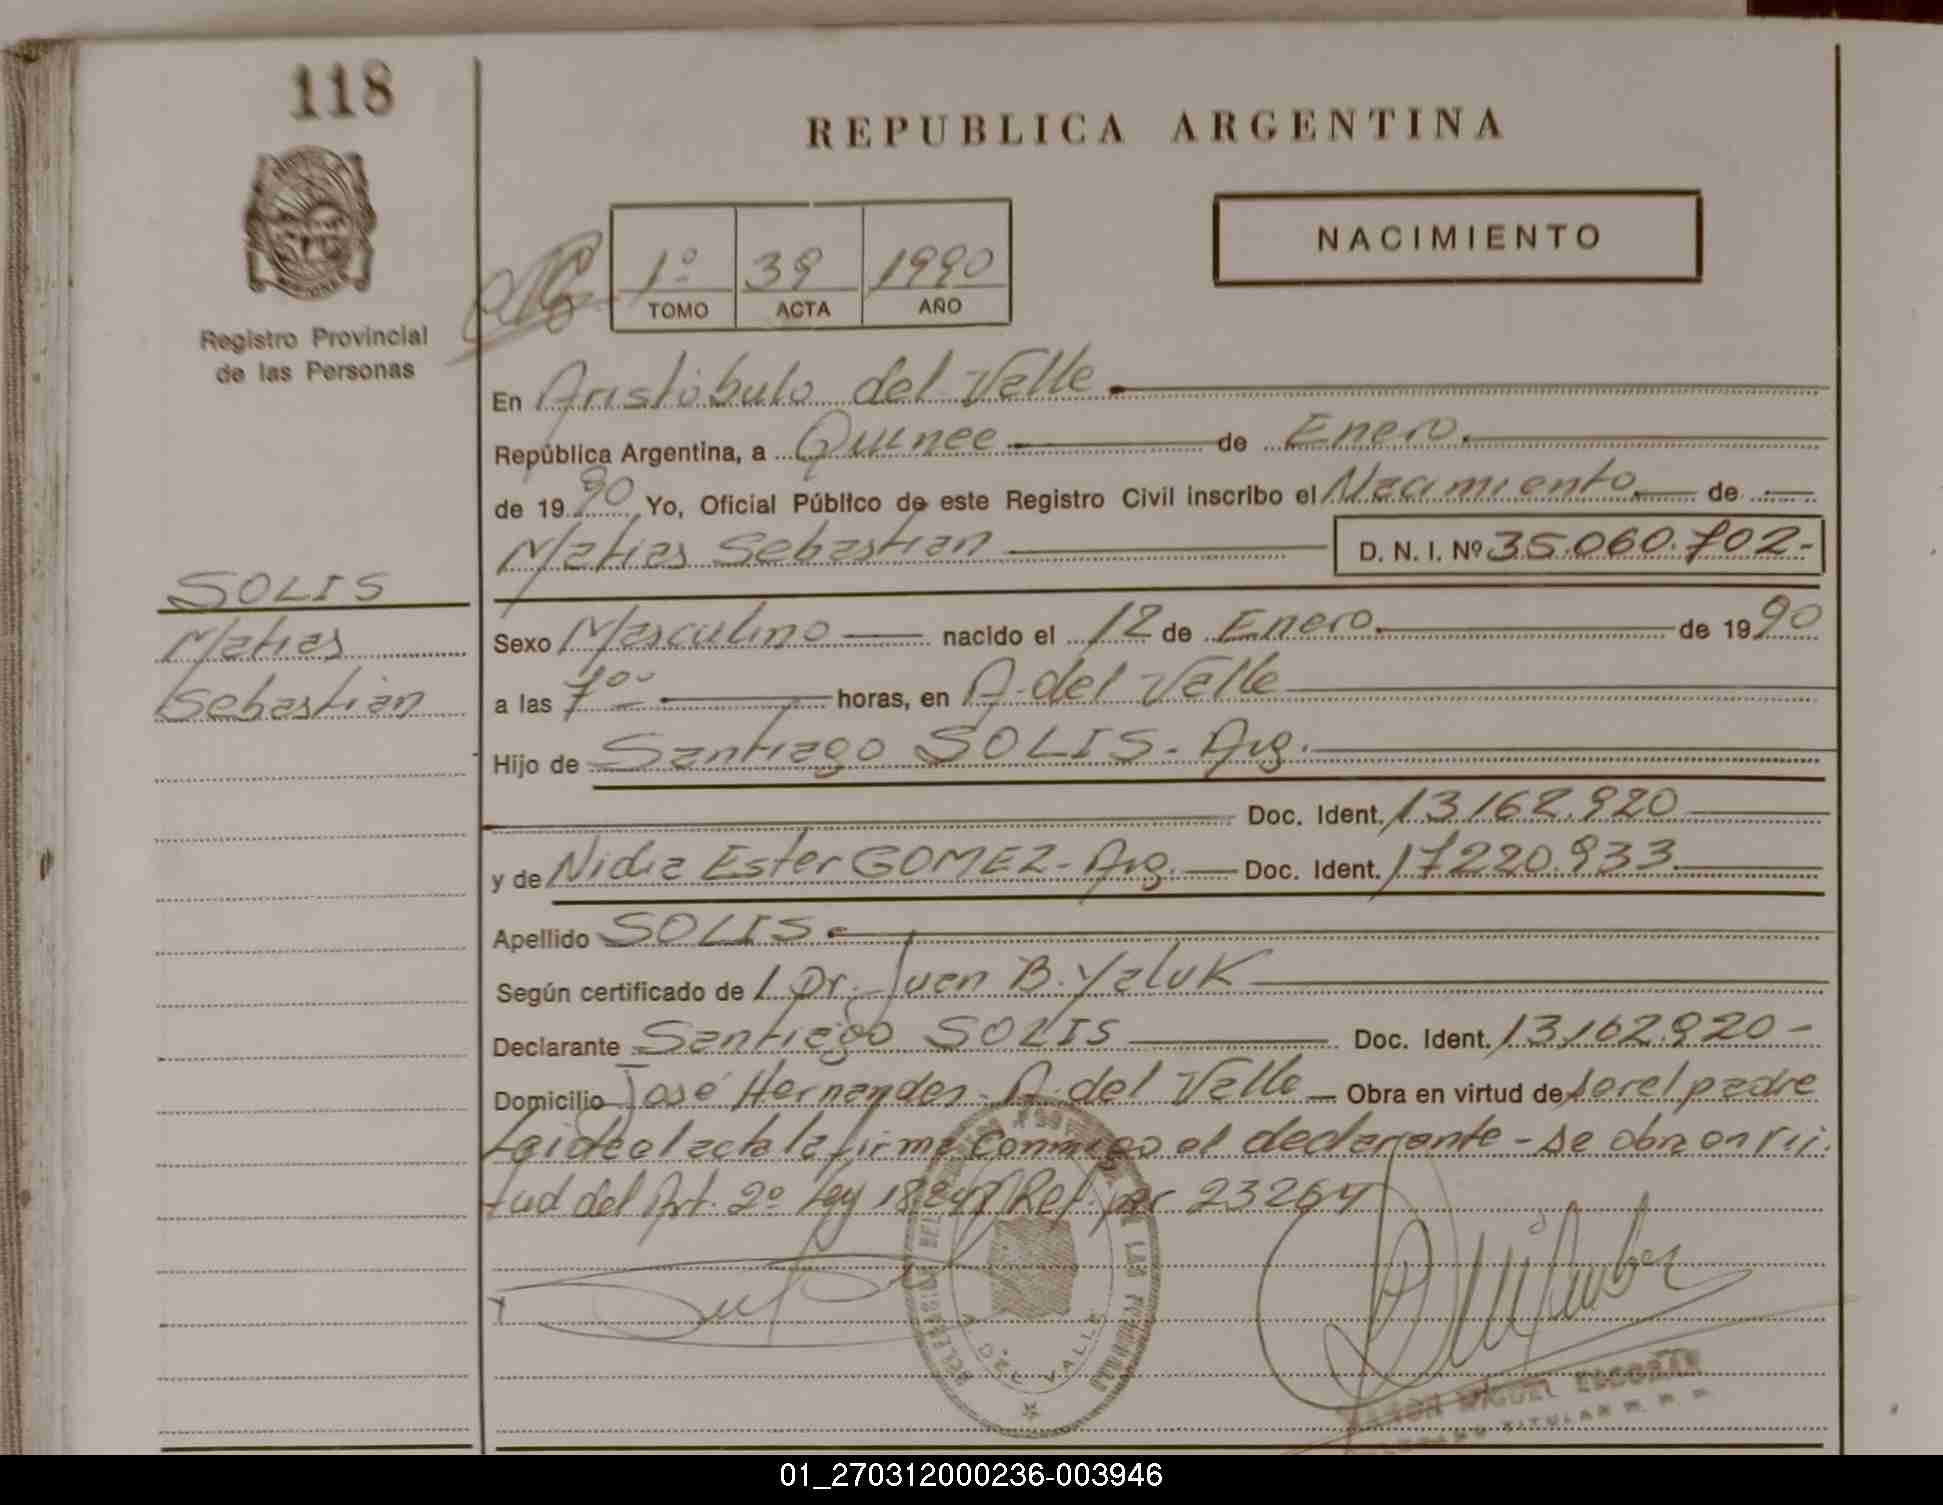 118
REPUBLICA ARGENTINA
NACIMIENTO
1º 39 1990
TOMO ACTA AÑO
Registro Provincial
de las Personas
En Aristóbulo del Valle
República Argentina, a Quince de Enero
de 1990 Yo, Oficial Público de este Registro Civil inscribo el Nacimiento de
Matias Sebastian D. N. I. Nº 35.060.702-
SOLIS
Matias
Sebastián
Sexo Masculino nacido el 12 de Enero de 1990
a las 7ºº horas, en A. del Valle
Hijo de Santiago SOLIS - Arg.
Doc. Ident. 13.162.920
y de Nidia Ester GOMEZ - Arg. Doc. Ident. 17220.933
Apellido SOLIS
Según certificado de l Dr. Juan B. Yaluk
Declarante Santiago SOLIS Doc. Ident. 13.162.920-
Domicilio José Hernandes - A. del Valle Obra en virtud de ser el padre
Leida el acta la firma conmigo el declarante - se obra en vir
tud del Art. 2º Ley 18248 Ref. por 23264
A DEL VALLE
RAMON MIGUEL ESCOBAR
TITULAR R. P. P.
01_270312000236-003946